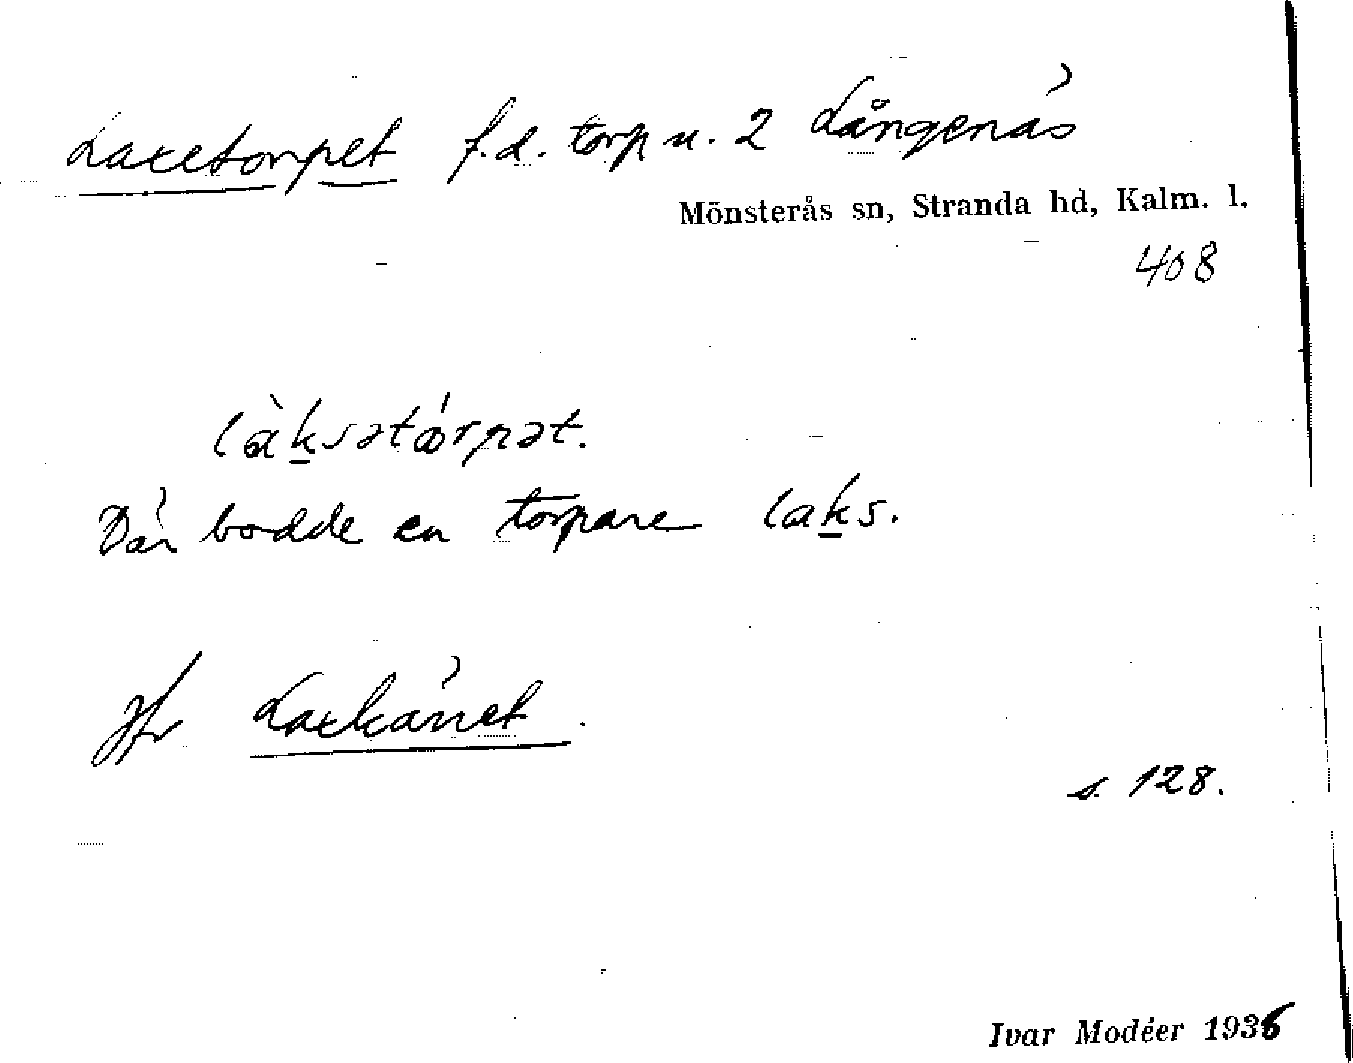 Laxetorpet f.d. torp u. 2 Långenäs
Mönsterås sn, Stranda hd, Kalm. l.
408
làksətórpət.
Där bodde en torpare laks.
Jfr Laxkärret.
s. 128.
Ivar Modéer 1936